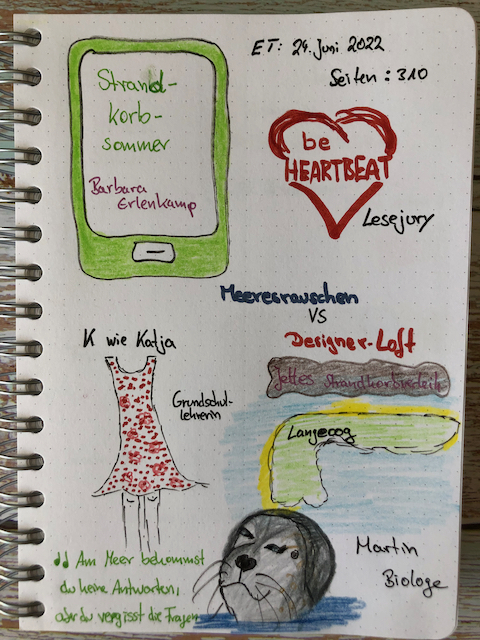 ET: 24. Juni 2022
Seiten: 310
Strand-
korb-
sommer
Barbara
Erlenkamp
be
HEARTBEAT
Lesejury
Meeresrauschen
VS
Designer-Loft
K wie Katja
Grundschul-
lehrerin
Jettes Strandkorbverleih
Langeoog
Martin
Biologe
Am Meer bekommst
du keine Antworten,
aber du vergisst die Fragen